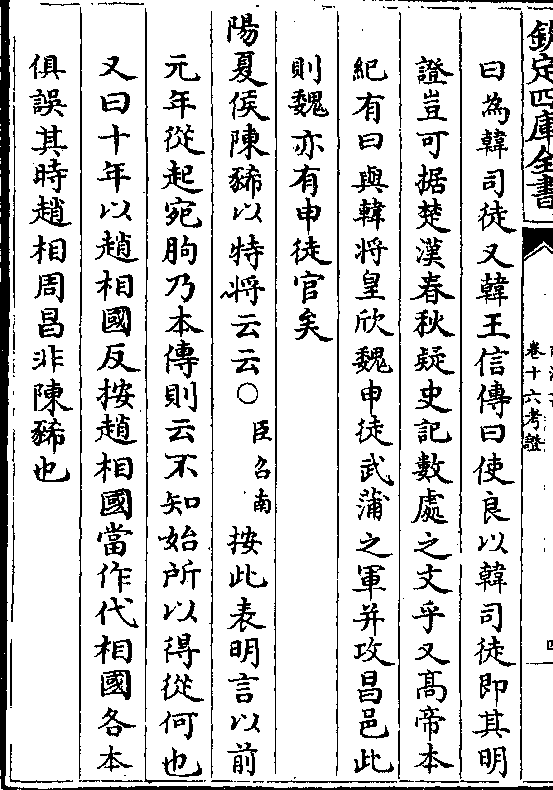 欽定四庫全書
卷十六考證
曰為韓司徒又韓王信傳曰使良以韓司徒即其明
證豈可据楚漢春秋疑史記數處之文乎又髙帝本
紀有曰與韓將皇欣魏申徒武蒲之軍并攻昌邑此
則魏亦有申徒官矣
陽夏侯陳豨以特將云云○臣召南按此表明言以前
元年從起宛朐乃本傳則云不知始所以得從何也
又曰十年以趙相國反按趙相國當作代相國各本
俱誤其時趙相周昌非陳豨也